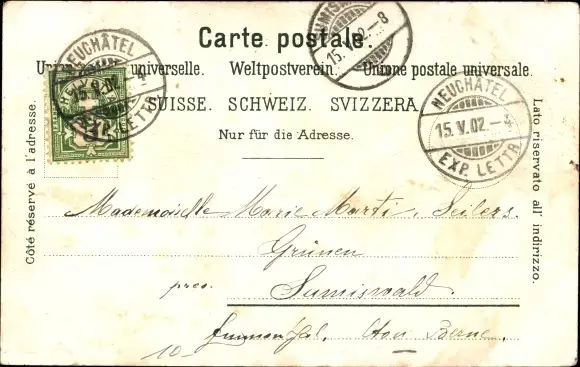 Carte postale.
Union postale universelle. Weltpostverein. Unione postale universale.
SUISSE. SCHWEIZ. SVIZZERA
Nur für die Adresse.
Côté réservé à l'adresse.
Lato riservato all' indirizzo.
NEUCHÂTEL
EXP. LETTR.
SUMISWALD
15.V.02.-8
NEUCHÂTEL
15.V.02.-
EXP. LETTR.
Mademoiselle Marie Marti, Seilers.
Grünen
près. Sumiswald
Emmenthal. Cton Berne.
10